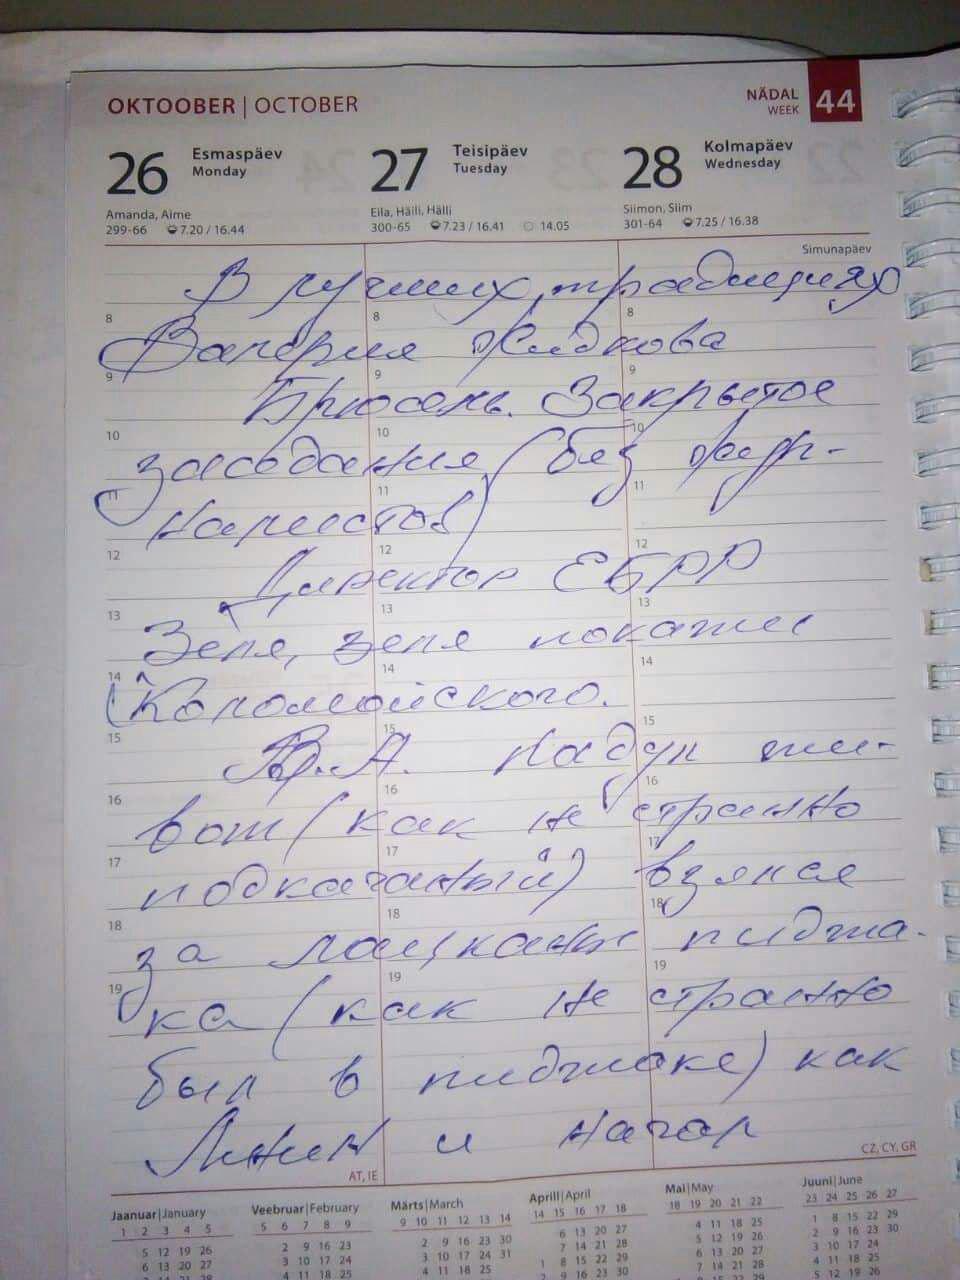 OKTOOBER | OCTOBER
NÄDAL
WEEK
44
26 Esmaspäev
Monday
Amanda, Aime
299-66 7.20 / 16.44
27 Teisipäev
Tuesday
Eila, Häili, Hälli
300-65 7.23 / 16.41 14.05
28 Kolmapäev
Wednesday
Siimon, Siim
301-64 7.25 / 16.38
Simunapäev
В лучших традициях
8 8 8
Валерия Жидкова
9 9 9
Брюсель. Закрытое
10 10 10
заседания (без жур-
11 11 11
налистов)
12 12 12
Директор ЕБРР
13 13 13
Зеля, зеля покажи
14 14 14
Коломойского.
15 15 15
В.А. надул жи-
16 16 16
вот (как не странно
17 17 17
подкачаный) взялся
18 18 18
за лацканы пиджа-
19 19 19
ка (как не странно
был в пиджаке) как
Ленин и начал
AT, IE
CZ, CY, GR
Jaanuar | January
1 2 3 4 5
5 12 19 26
6 13 20 27
7 14 21 28
Veebruar | February
5 6 7 8 9
2 9 16 23
3 10 17 24
4 11 18 25
Märts | March
9 10 11 12 13 14
2 9 16 23 30
3 10 17 24 31
4 11 18 25
Aprill | April
14 15 16 17 18
6 13 20 27
7 14 21 28
1 8 15 22 29
2 9 16 23 30
Mai | May
18 19 20 21 22
4 11 18 25
5 12 19 26
6 13 20 27
7 14 21 28
Juuni | June
23 24 25 26 27
1 8 15 22 29
2 9 16 23 30
3 10 17 24
4 11 18 25
5 12 19 26